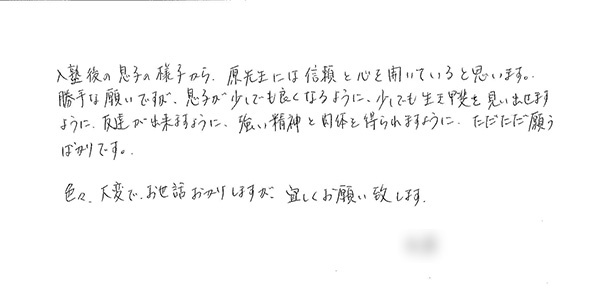 入塾後の息子の様子から、原先生には信頼と心を開いていると思います。
勝手な願いですが、息子が少しでも良くなるように、少しでも生き甲斐を見い出せます
ように、友達が出来ますように、強い精神と肉体を得られますように、ただただ願う
ばかりです。
色々、大変で、お世話おかけしますが、宜しくお願い致します。